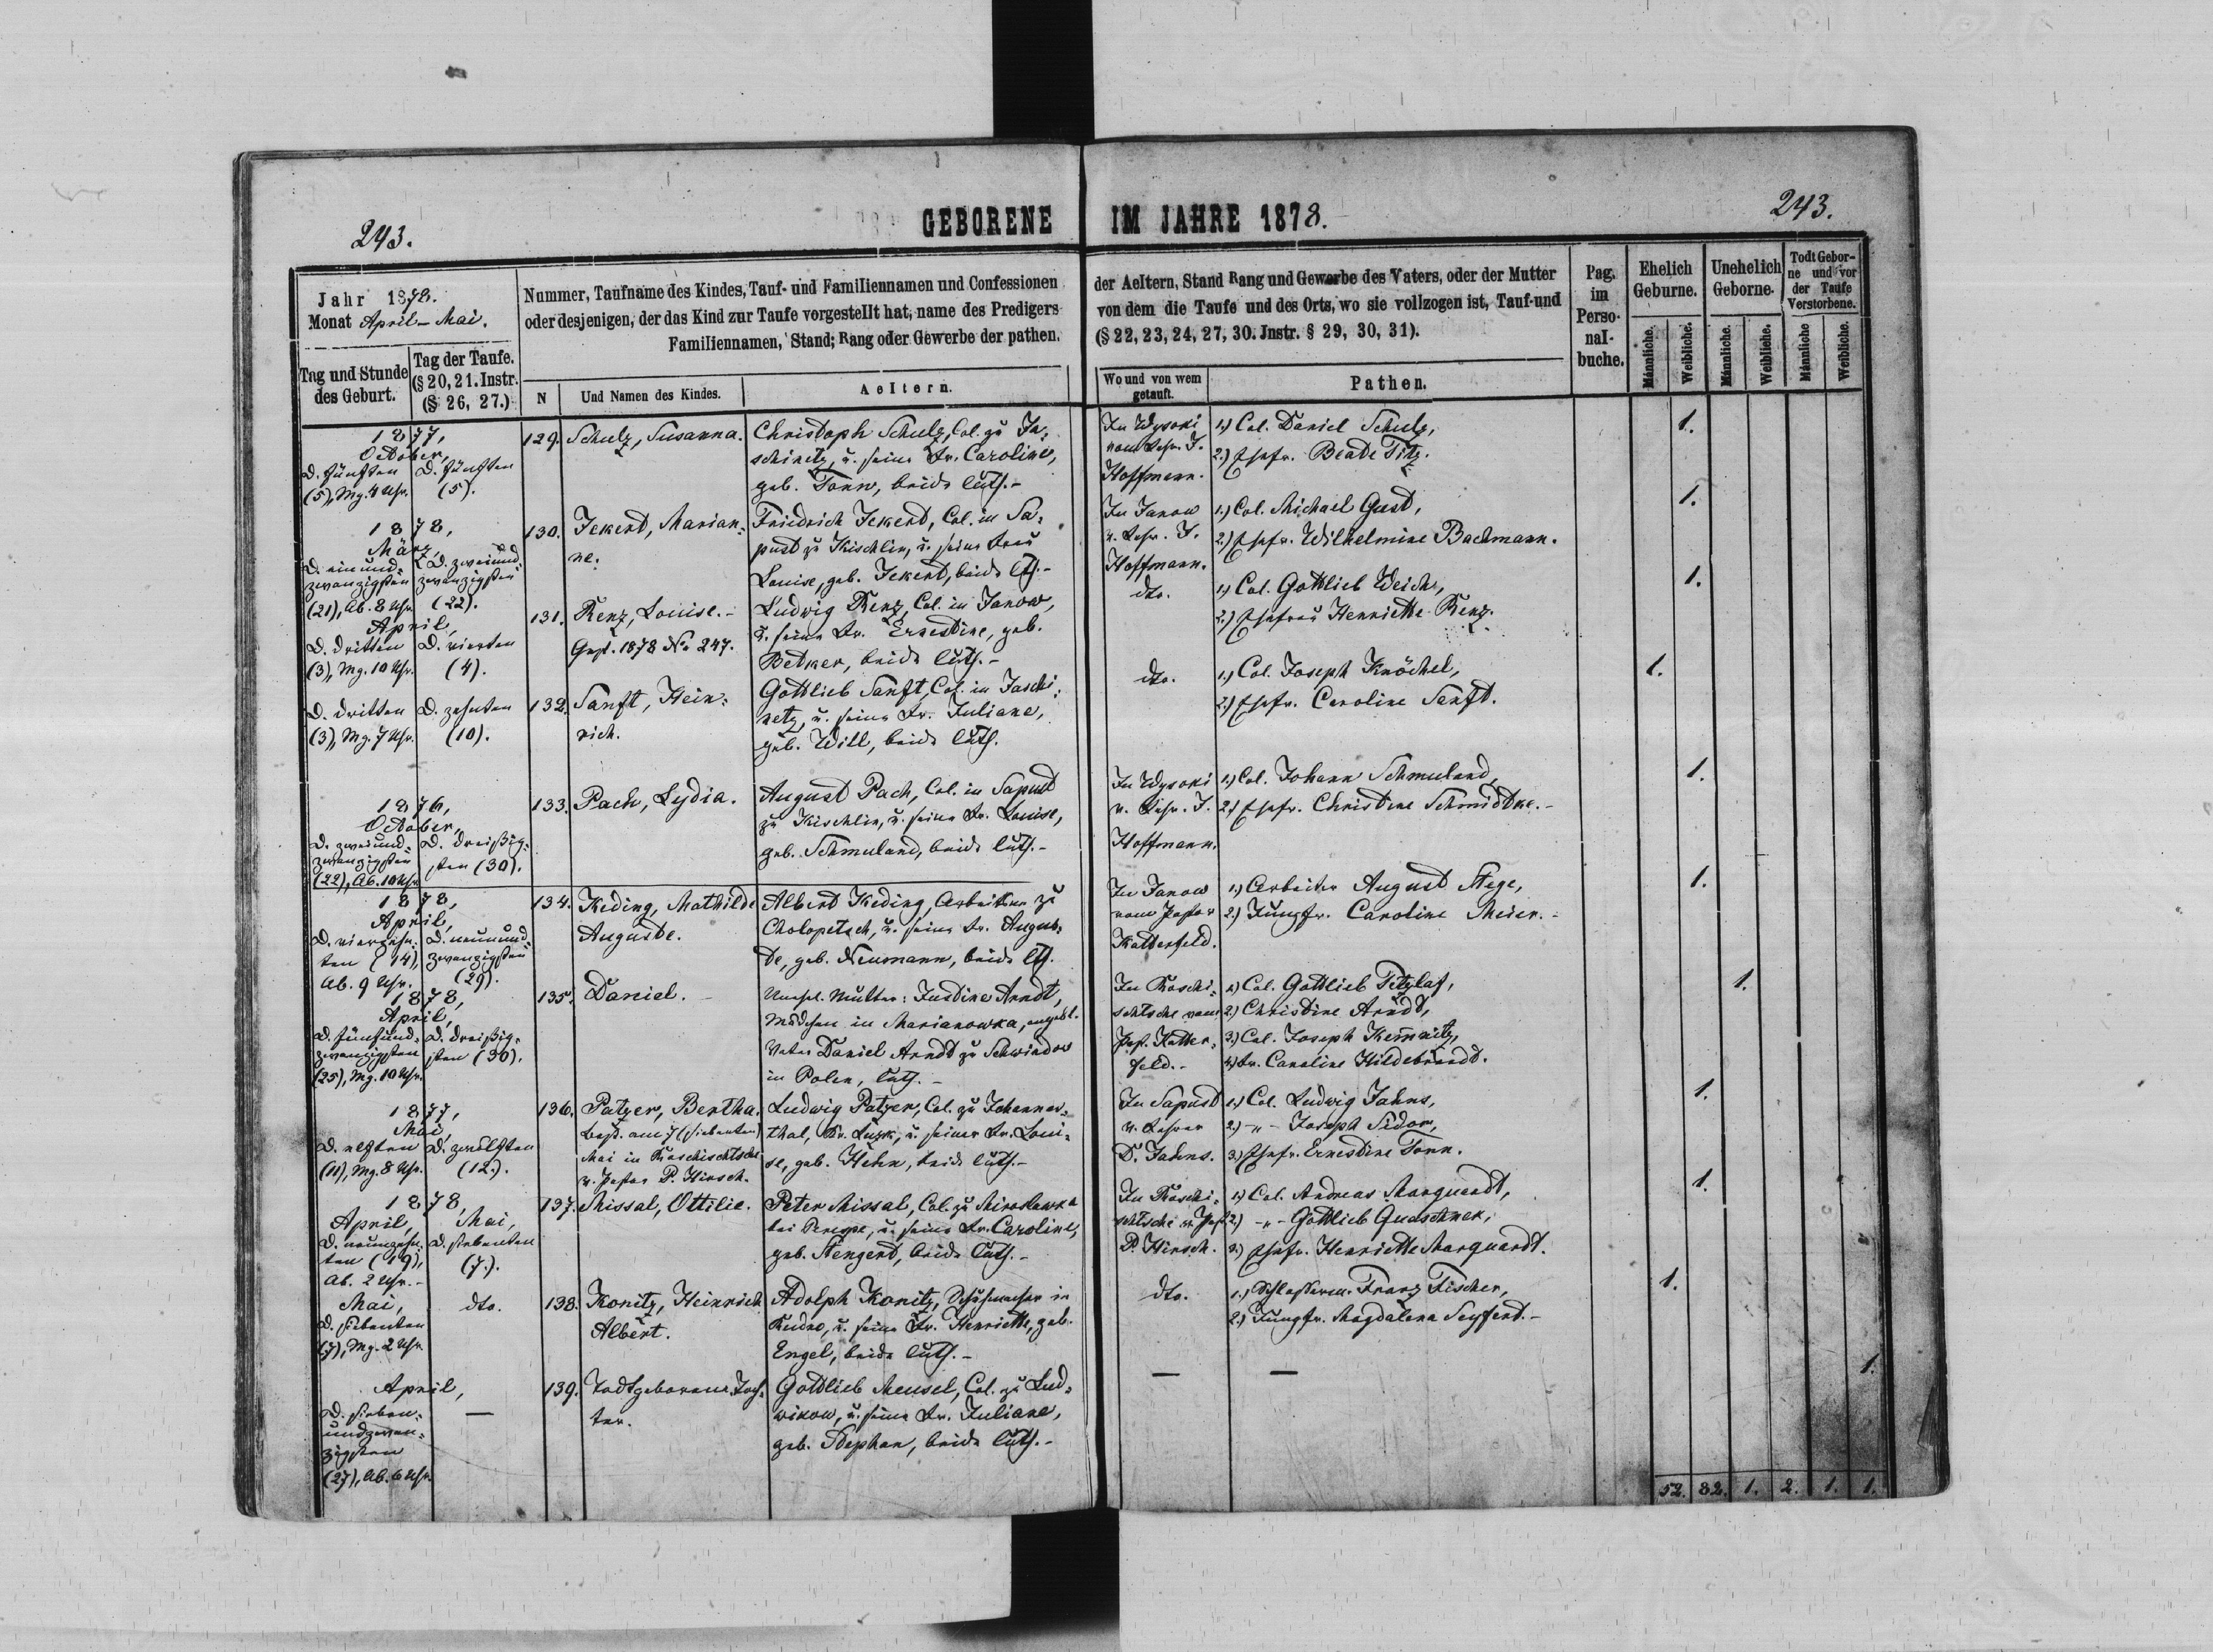 243.
GEBORENE
IM JAHRE 1878.
243.
Jahr 1878.
Monat April-Mai.
Tag und Stunde
des Geburt.
Tag der Taufe.
(§ 20, 21. Instr.
(§ 26, 27.)
Nummer, Taufname des Kindes, Tauf- und Familiennamen und Confessionen
oder desjenigen, der das Kind zur Taufe vorgestellt hat, name des Predigers
Familiennamen, Stand; Rang oder Gewerbe der pathen.
N
Und Namen des Kindes.
Aeltern.
der Aeltern, Stand Rang und Gewerbe des Vaters, oder der Mutter
von dem die Taufe und des Orts, wo sie vollzogen ist, Tauf-und
(§ 22, 23, 24, 27, 30. Jnstr. § 29, 30, 31).
Wo und von wem
getauft.
Pathen.
Pag.
im
Perso-
nal-
buche.
Ehelich
Geburne.
Unehelich
Geborne.
Todt Gebor-
ne und vor
der Taufe
Verstorbene.
Männliche.
Weibliche.
Männliche.
Weibliche.
Männliche
Weibliche.
1877,
October,
D. fünften
(5), Mg. 4 Uhr.
D. fünften
(5).
129. Schulz, Susanna.
Christoph Schulz, Col. zu Ja-
schinetz, u. seine Fr. Caroline,
geb. Tonn, beide luth.-
In Wysoki
vom Lehr. J.
Hoffmann.
1.) Col. Daniel Schulz,
2.) Ehefr. Beate Titz.
1.
1878,
März,
D. einund-
zwanzigsten
(21), Ab. 8 Uhr.
D. zweiund-
zwanzigsten
(22).
130. Jekert, Marian-
ne.
Friedrich Jekert, Col. in Sa-
pust zu Kischlin, u. seine Frau
Louise, geb. Jekert, beide lth.-
In Janow
v. Lehr. J.
Hoffmann.
1.) Col. Michael Gust,
2.) Ehefr. Wilhelmine Bachmann.
1.
April,
D. dritten
(3), Mg. 10 Uhr.
D. vierten
(4).
131. Renz, Louise.-
Gest. 1878 No 247.
Ludwig Renz, Col. in Janow,
u. seine Fr. Ernestine, geb.
Betker, beide luth.-
dto.
1.) Col. Gottlieb Weich,
2.) Ehefrau Henriette Renz.
1.
D. dritten
(3), Mg. 7 Uhr.
D. zehnten
(10).
132. Sanft, Hein-
rich.
Gottlieb Sanft, Col. in Jaschi-
netz, u. seine Fr. Juliane,
geb. Will, beide luth.
dto.
1.) Col. Joseph Knöchel,
2.) Ehefr. Caroline Sanft.
1.
1876,
October,
D. zweiund-
zwanzigsten
(22), Ab. 10 Uhr
D. dreißig-
sten (30).
133. Pach, Lydia.
August Pach, Col. in Sapust
zu Kischlin, u. seine Fr. Louise,
geb. Schmuland, beide luth.-
In Wysoki
v. Lehr. J.
Hoffmann.
1.) Col. Johann Schmuland,
2.) Ehefr. Christine Schmidtke.-
1.
1878,
April,
D. vierzehn-
ten (14),
Ab. 9 Uhr.
D. neunund-
zwanzigsten
(29).
134. Keding, Mathilde
Auguste.
Albert Keding, Arbeiter zu
Cholopetsch, u. seine Fr. Augus-
te, geb. Neumann, beide lth.
In Janow
vom Pastor
Katterfeld.
1.) Arbeiter August Stege,
2.) Jungfr. Caroline Meier.-
1.
1878,
April,
D. fünfund-
zwanzigsten
(25), Mg. 10 Uhr.
D. dreißig-
sten (30).
135. Daniel.-
Unehel. Mutter: Justine Arndt,
Mädchen in Marianowka, angebl.
Vater Daniel Arndt zu Schwindow
in Polen, luth.-
In Roschi-
schtsche vom
Past. Katter-
feld.-
1.) Col. Gottlieb Titzlaf,
2.) Christine Arndt,
3.) Col. Joseph Kemnitz,
4.) Fr. Caroline Hildebrandt.
1.
1877,
Mai,
D. elften
(11), Mg. 8 Uhr.
D. zwölften
(12.).
136. Patzer, Bertha.
best. am 7 (siebenten)
Mai in Roschischtsche
v. Pastor P. Hirsch.
Ludwig Patzer, Col. zu Johannes-
thal, Kr. Luzk, u. seiner Fr. Loui-
se, geb. Hehn, beide luth.-
In Sapust
v. Lehrer
D. Jahns.
1.) Col. Ludwig Jahns,
2.) -"- Joseph Sidor,
3.) Ehefr. Ernestine Tonn.
1.
1878,
April,
D. neunzehn-
ten (19),
Ab. 2 Uhr.-
Mai,
D. siebenten
(7.).
137. Missal, Ottilie.
Peter Missal, Col. zu Miroslawka
bei Perespe, u. seine Fr. Caroline,
geb. Stengert, beide luth.-
In Roschi-
schtsche v. Past.
P. Hirsch.
1.) Col. Andreas Marquardt,
2.) -"- Gottlieb Quaschnek,
3.) Ehefr. Henriette Marquardt.
1.
Mai,
D. siebenten
(7), Mg. 2 Uhr
dto.
138. Konitz, Heinrich
Albert.
Adolph Konitz, Schuhmacher in
Rudno, u. seine Fr. Henriette, geb.
Engel, beide luth.-
dto.
1.) Schlosserm. Franz Fischer,
2.) Jungfr. Magdalena Seyfert.-
1.
April,
D. sieben-
undzwan-
zigsten
(27), Ab. 6 Uhr.
—
139. Todtgeborene Toch-
ter.
Gottlieb Mensel, Col. zu Lud-
wikow, u. seine Fr. Juliane,
geb. Stephan, beide luth.-
—
—
1.
52. 82. 1. 2. 1. 1.